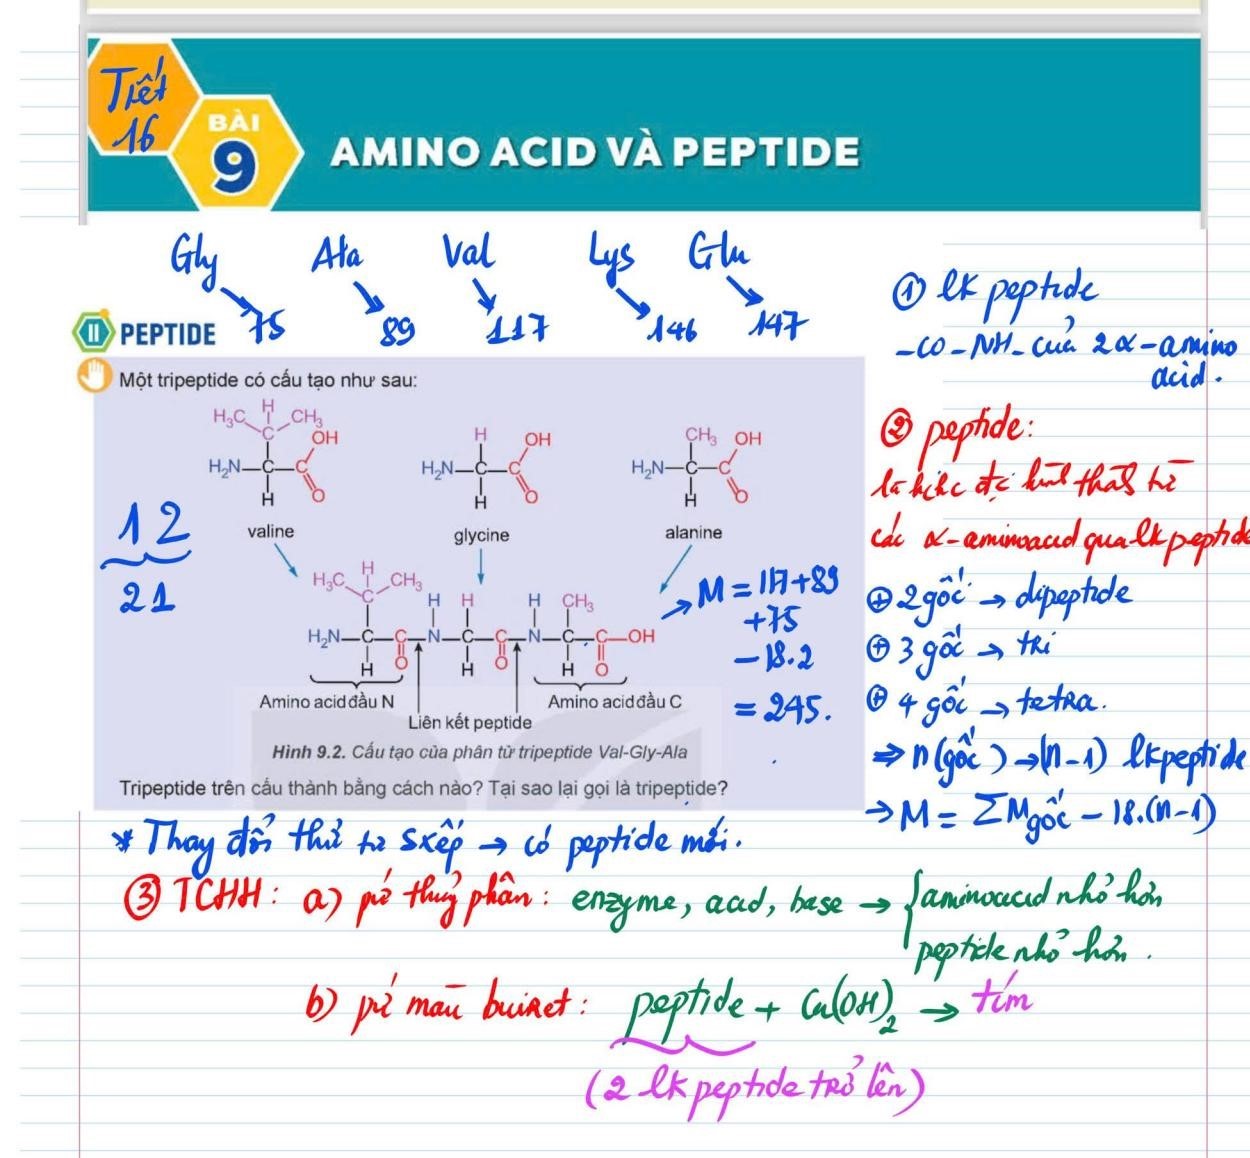 Tiết
16
BÀI
9
AMINO ACID VÀ PEPTIDE
Gly Ala Val Lys Glu
75 89 117 146 147
II PEPTIDE
Một tripeptide có cấu tạo như sau:
H
H₃C C CH₃
OH
H₂N C C
H O
valine
H OH
H₂N C C
H O
glycine
CH₃ OH
H₂N C C
H O
alanine
12
21
H
H₃C C CH₃ H H H CH₃
H₂N—C—C—N—C—C—N—C—C—OH
H O H O H O
Amino acid đầu N
Liên kết peptide
Amino acid đầu C
Hình 9.2. Cấu tạo của phân tử tripeptide Val-Gly-Ala
Tripeptide trên cấu thành bằng cách nào? Tại sao lại gọi là tripeptide?
→ M = 117+89
+75
- 18.2
= 245.
① lk peptide
-CO-NH- của 2 α-amino
acid.
② peptide:
là hchc đc hình thành từ
các α-aminoacid qua lk peptide
⊕ 2 gốc → dipeptide
⊕ 3 gốc → tri
⊕ 4 gốc → tetra.
⇒ n (gốc) → (n-1) lk peptide
→ M = ΣM gốc - 18.(n-1)
* Thay đổi thứ tự sxếp → có peptide mới.
③ TCHH: a) pứ thuỷ phân: enzyme, acid, base → { aminoacid nhỏ hơn
peptide nhỏ hơn.
b) pứ màu buiret: peptide + Cu(OH)₂ → tím
(2 lk peptide trở lên)